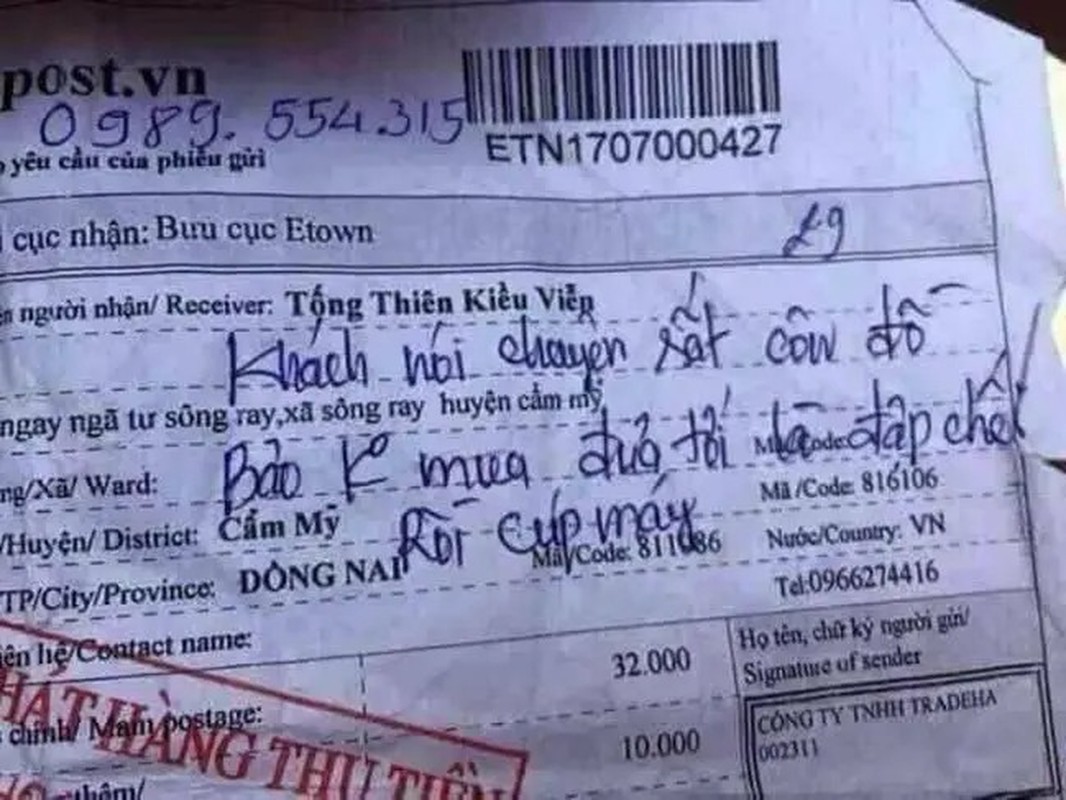 post.vn
0989.554.315
ETN1707000427
yêu cầu của phiếu gửi
cục nhận: Bưu cục Etown
29
người nhận/ Receiver: Tống Thiên Kiều Viễn
Khách nói chuyện rất côn đồ
ngay ngã tư sông ray,xã sông ray huyện cẩm mỹ
Bảo k mua đưa tới là đập chết
ng/Xã/ Ward:
Mã /Code: 816106
/Huyện/ District: Cẩm Mỹ
Rồi cúp máy
Mã/Code: 811086
Nước/Country: VN
TP/City/Province: ĐỒNG NAI
Tel:0966274416
iên hệ/Contact name:
32.000
Họ tên, chữ ký người gửi/
Signature of sender
PHÁT HÀNG THU TIỀN
chính/ Main postage:
10.000
CÔNG TY TNHH TRADEHA
002311
thêm/